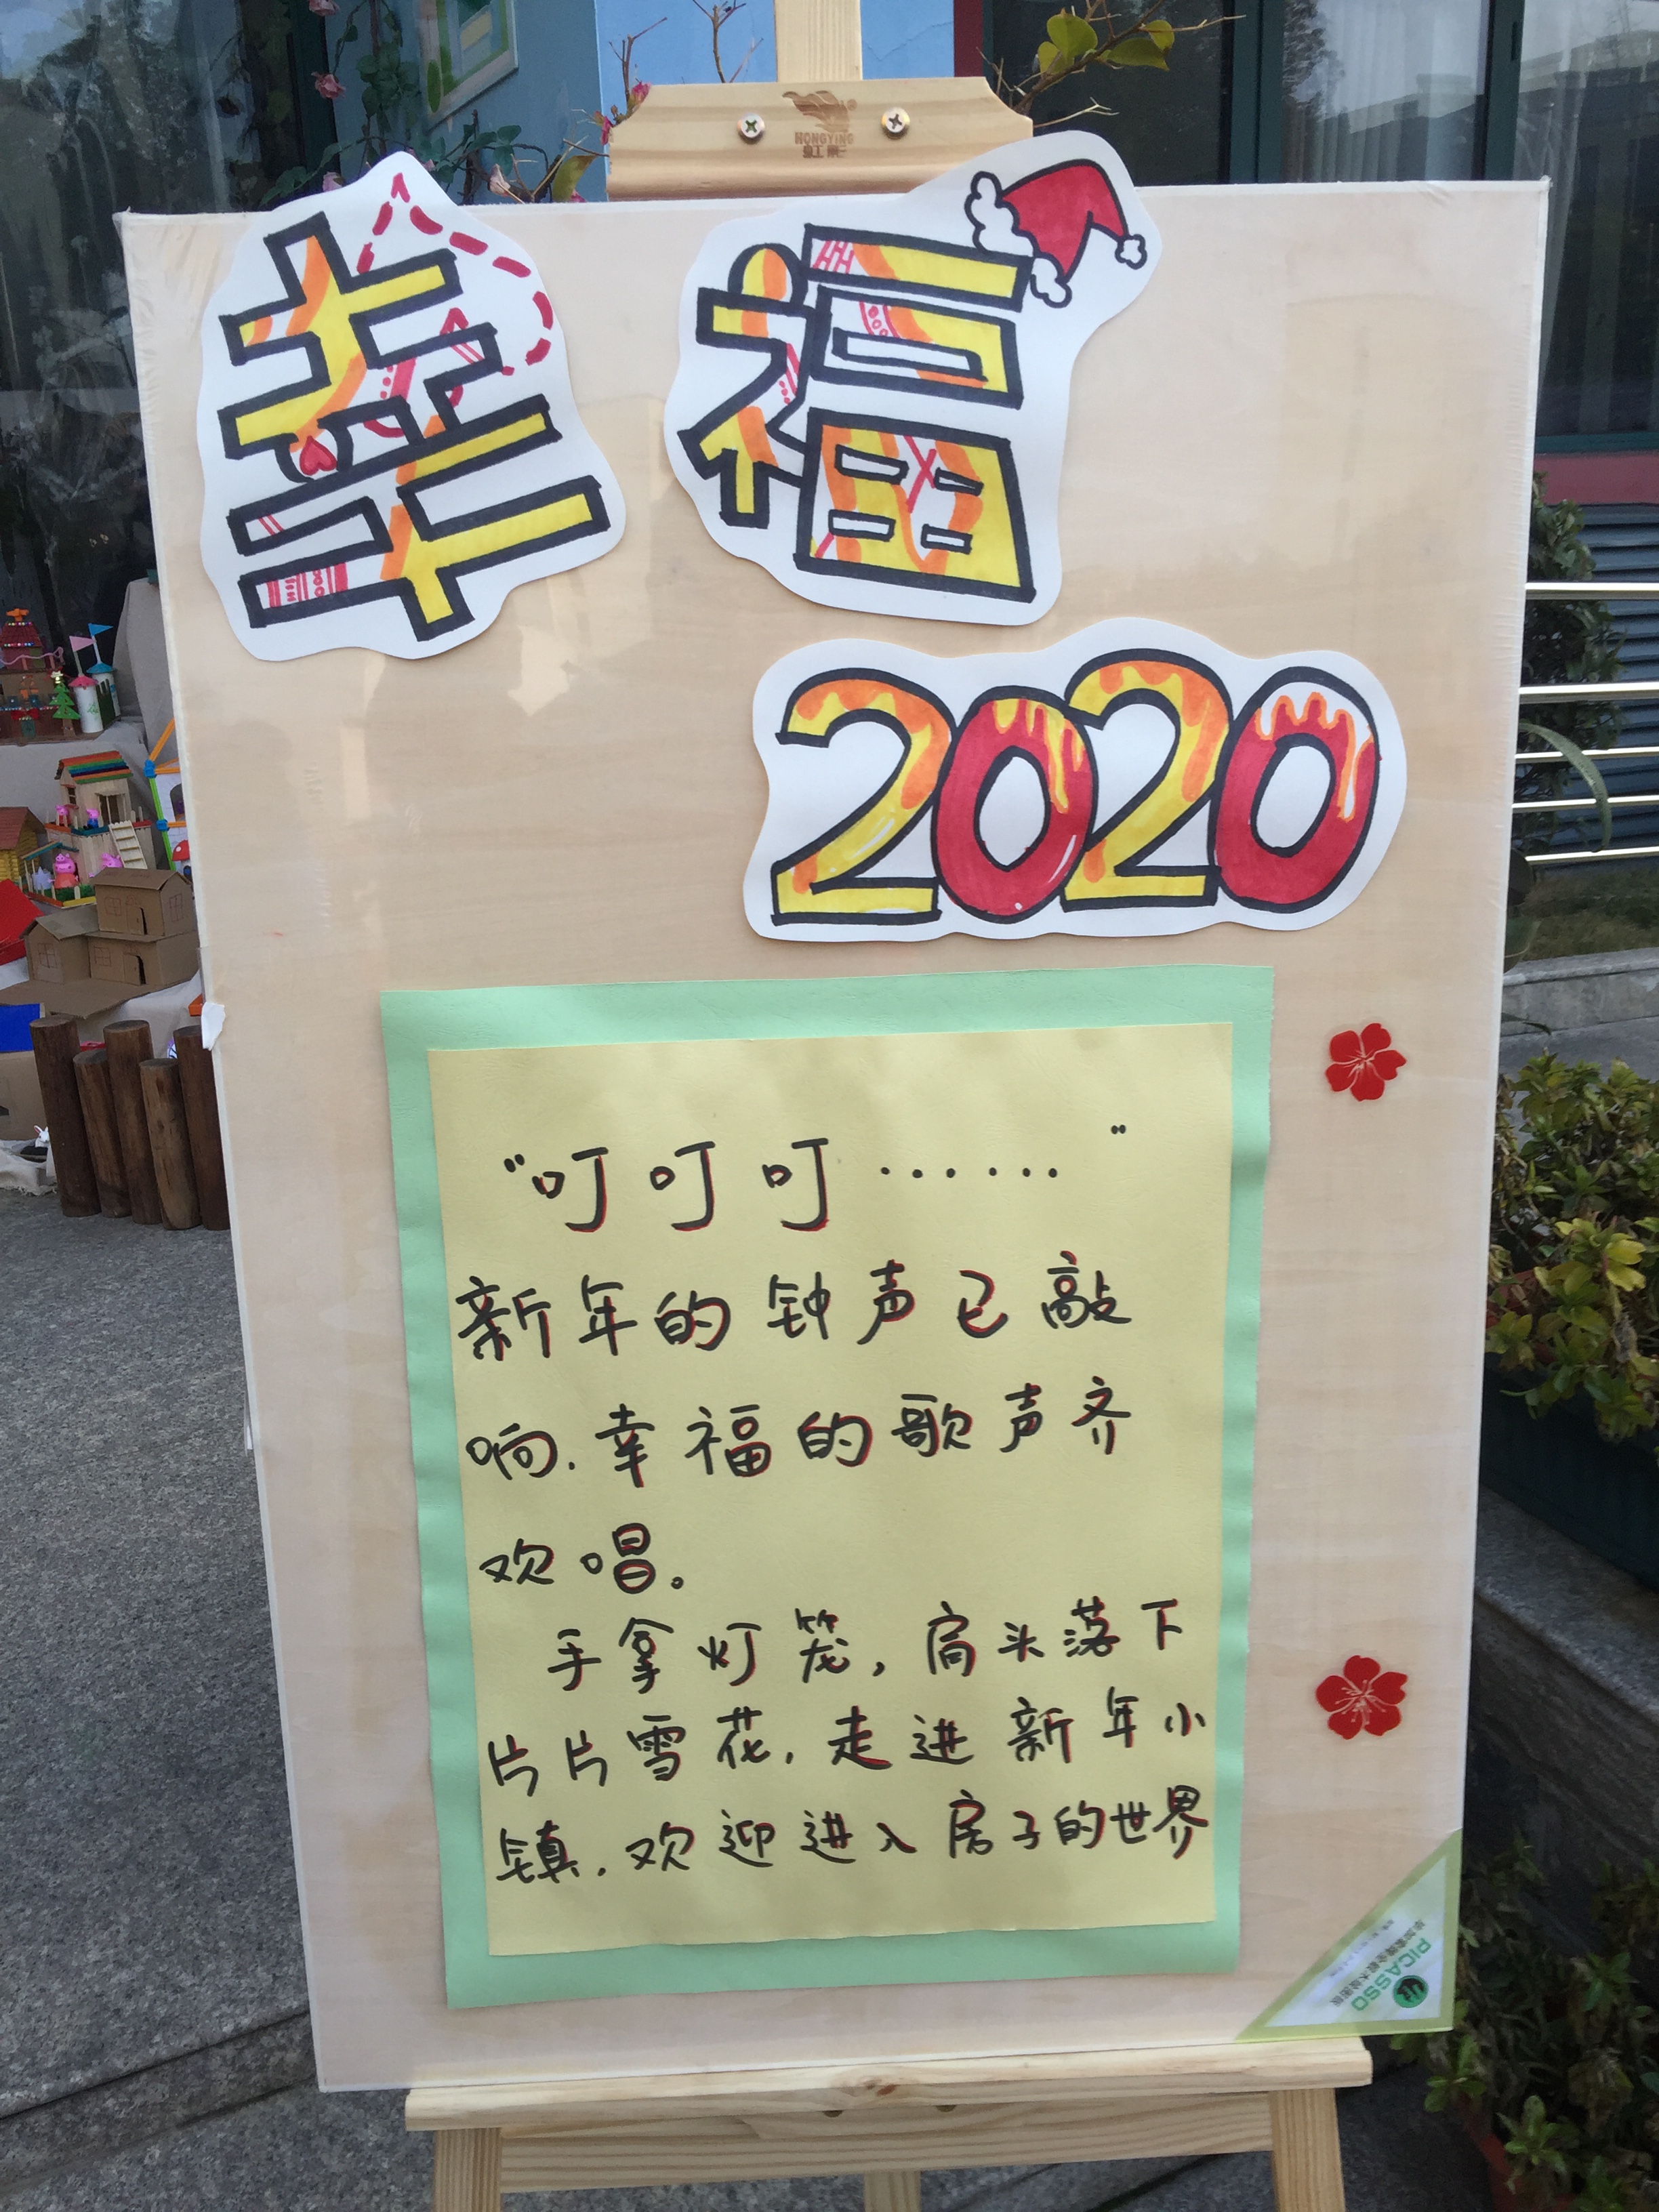 HONGYING
幸福
2020
“叮叮叮……”
新年的钟声已敲
响.幸福的歌声齐
欢唱。
手拿灯笼,肩头落下
片片雪花,走进新年小
镇,欢迎进入房子的世界
PICASSO